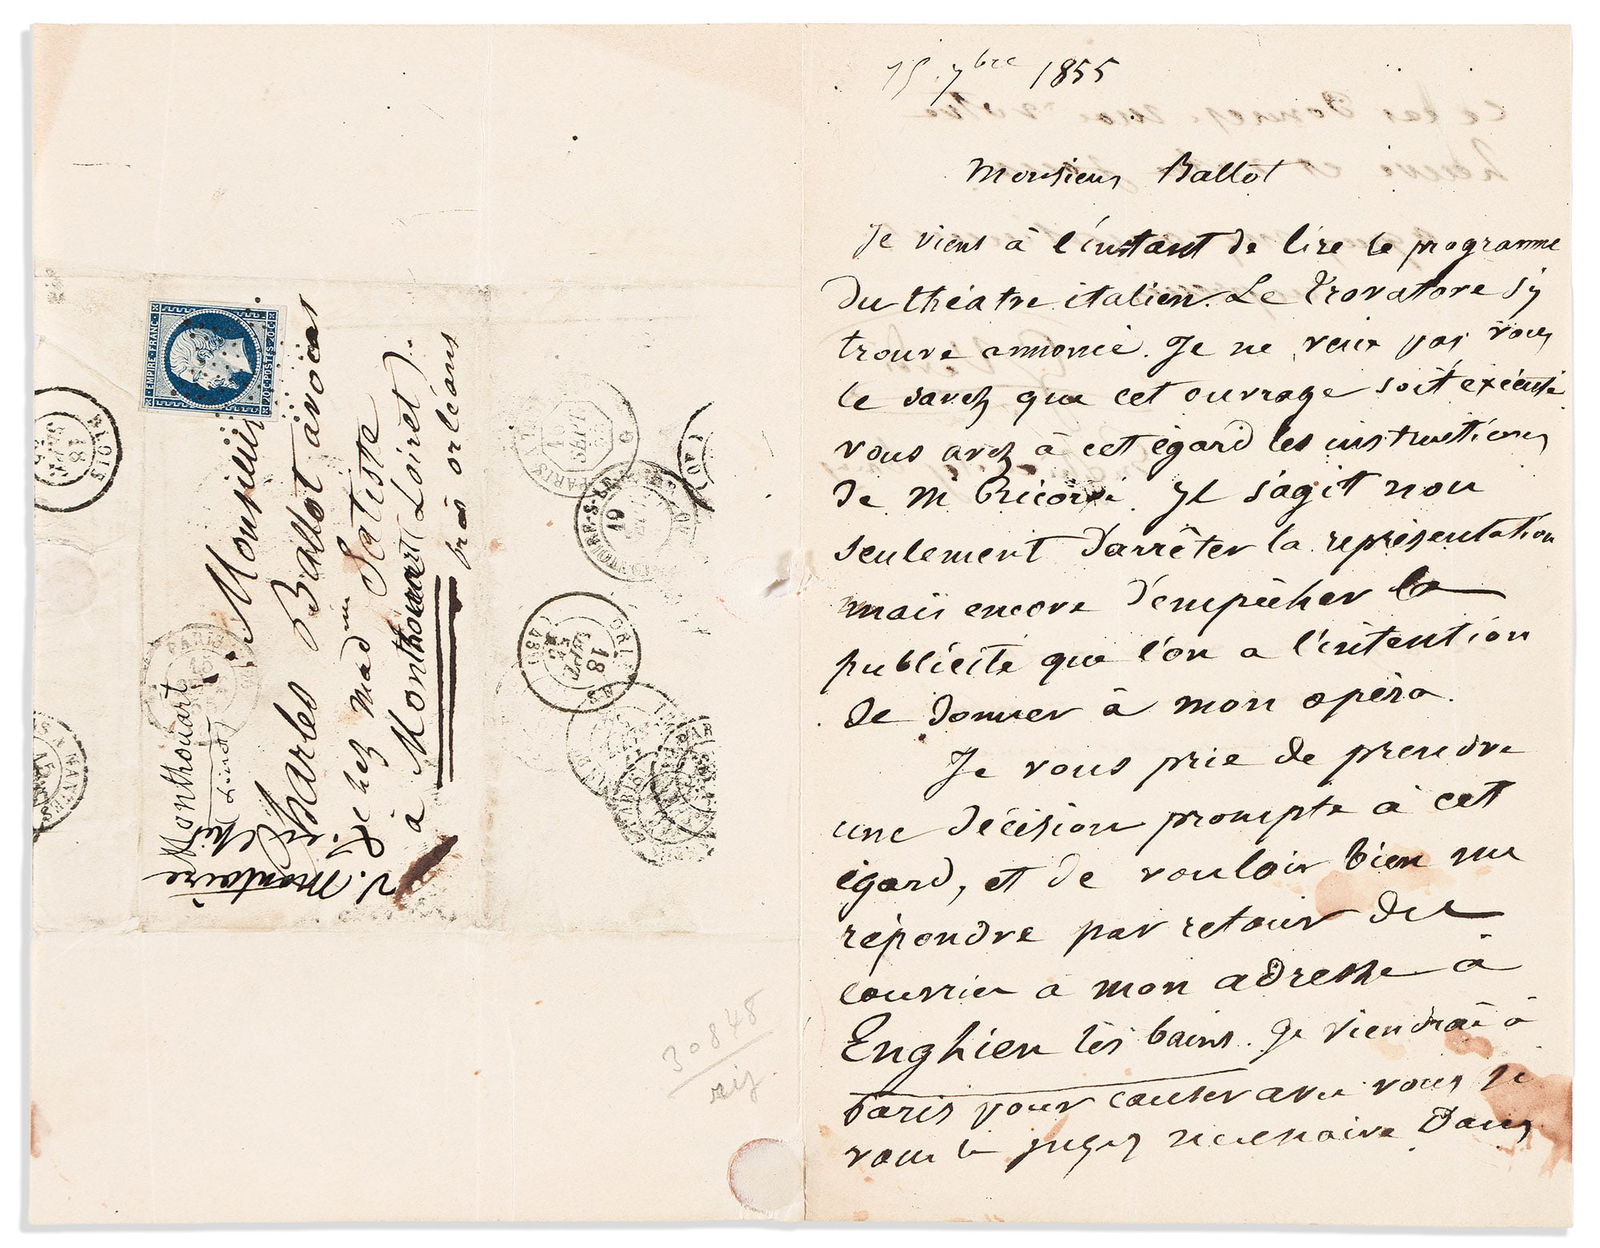 15 7bre 1855
Monsieur Ballot
Je viens à l'instant de lire le programme
du théatre italien. Le Trovatore s'y
trouve annoncé. Je ne veux pas vous
le savez que cet ouvrage soit exécuté
vous avez à cet égard les instructions
de Mr Ricordi. Il s'agit non
seulement d'arrêter la représentation
mais encore d'empêcher la
publicité que l'on a l'intention
de donner à mon opéra.
Je vous prie de prendre
une décision prompte à cet
égard, et de vouloir bien me
répondre par retour du
courrier à mon adresse à
Enghien les bains. Je viendrai à
Paris pour causer avec vous si
vous le jugez nécessaire. Dans
Monsieur
Charles Ballot avocat
chez madme Satiste
à Monthouart (Loiret).
près orléans
Monthouart
V. Montoire
EMPIRE FRANC
20 C POSTES 20 C
BLOIS
18
SEPT
PARIS
ORLEANS
18
SEPT
(43)
19
30848